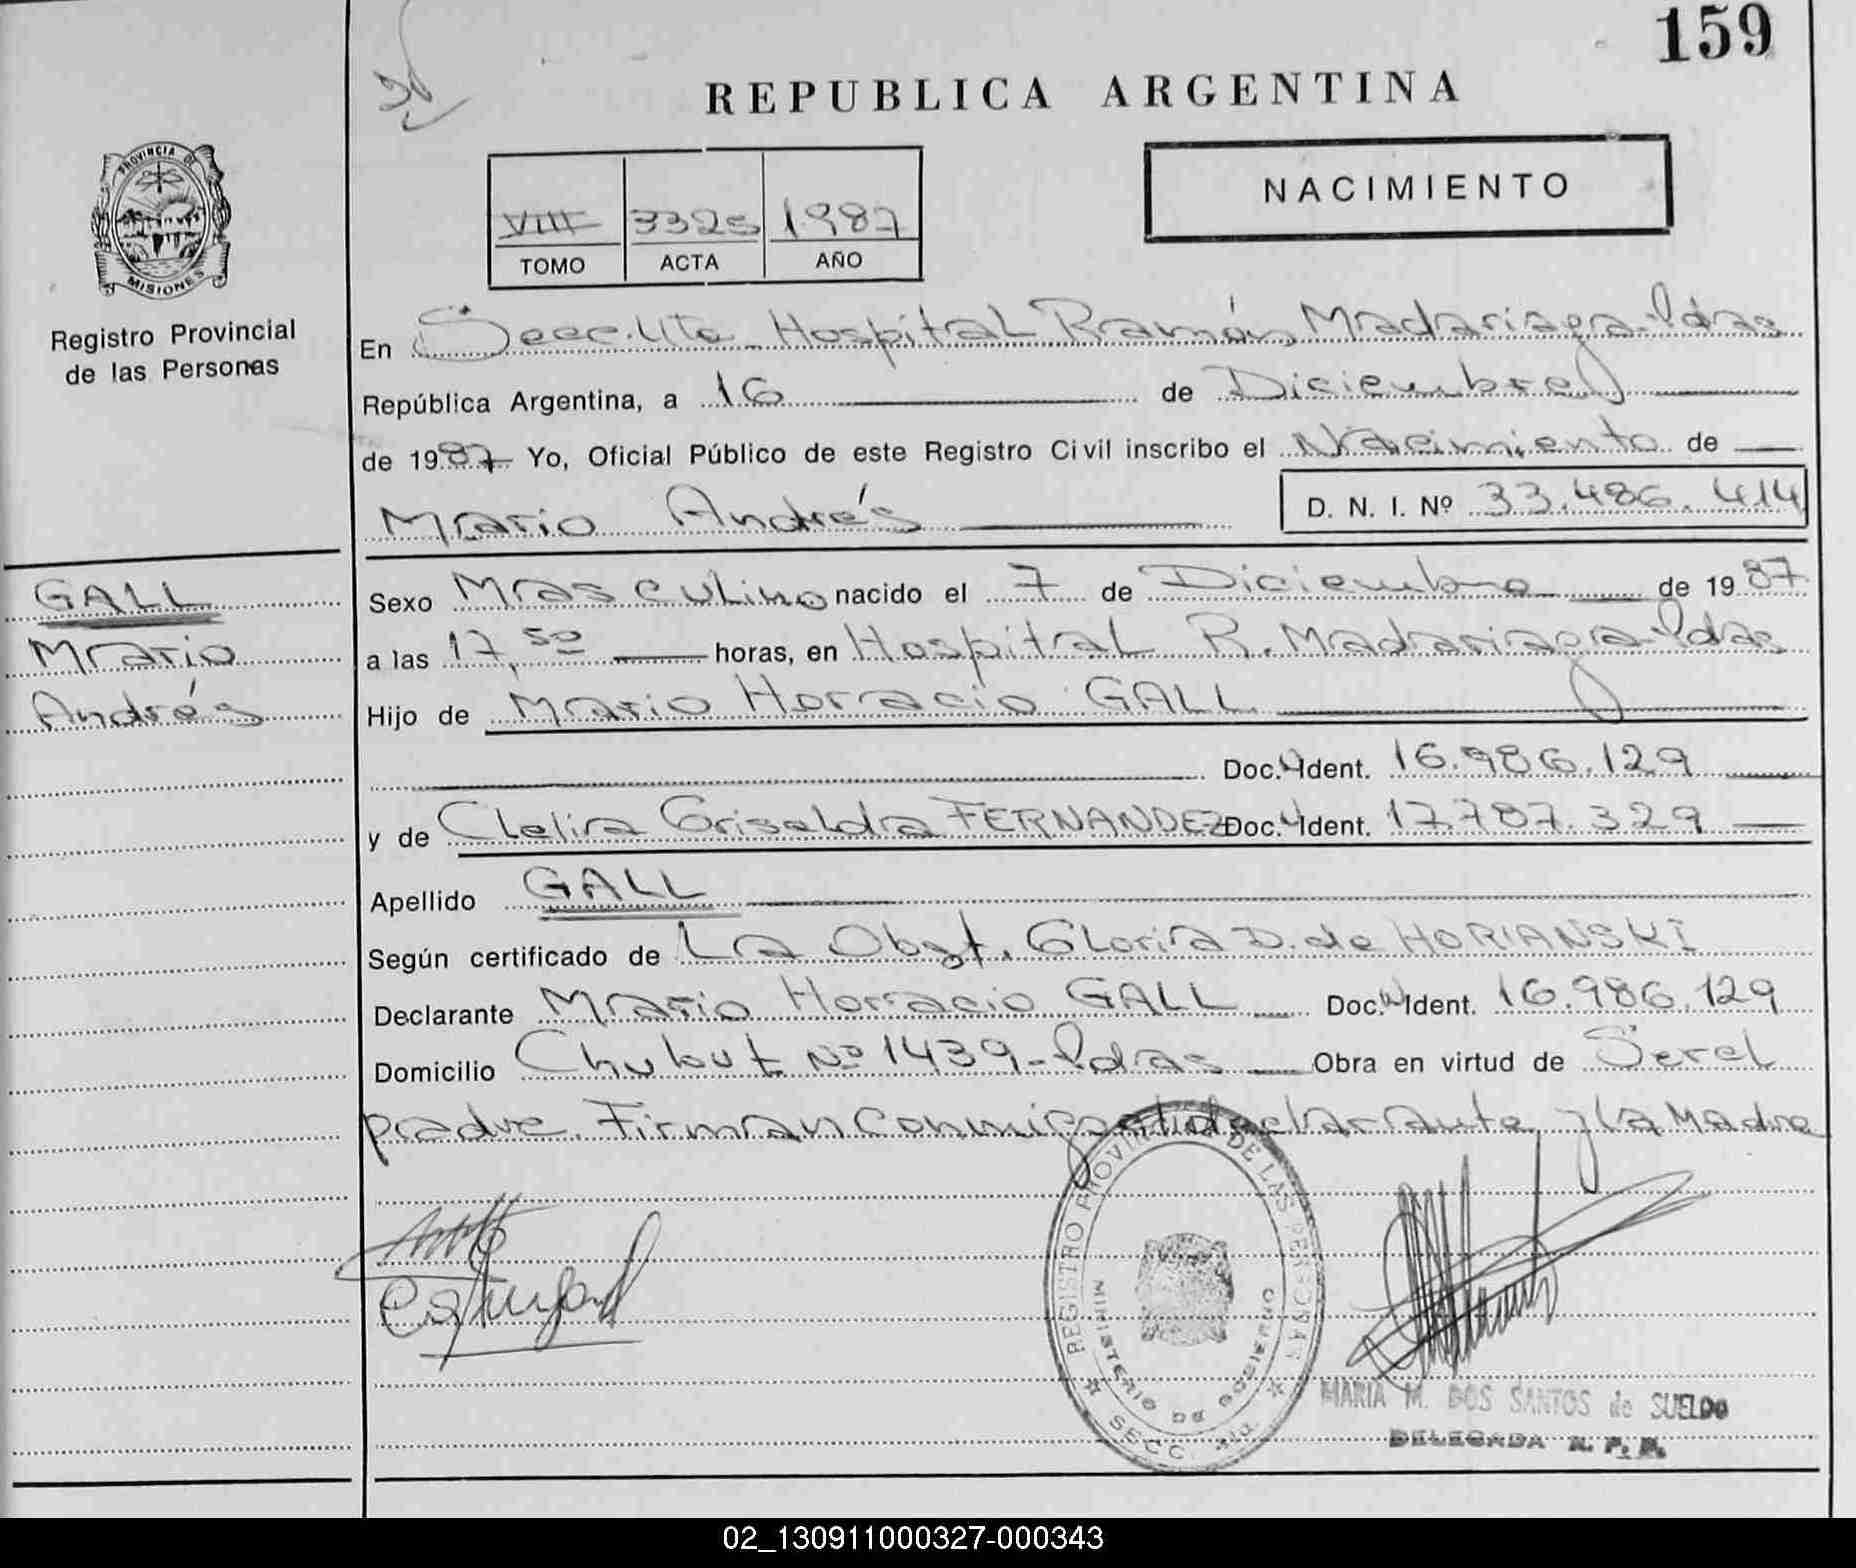 159
REPUBLICA ARGENTINA
NACIMIENTO
VIII 3325 1987
TOMO ACTA AÑO
PROVINCIA DE
MISIONES
Registro Provincial
de las Personas
En Secc. Hospital Ramón Madariaga Pdas
República Argentina, a 16 de Diciembre
de 1987 Yo, Oficial Público de este Registro Civil inscribo el Nacimiento de
Mario Andrés
D. N. I. Nº 33.486.414
GALL
Mario
Andrés
Sexo Masculino nacido el 7 de Diciembre de 1987
a las 17,50 horas, en Hospital R. Madariaga-Pdas
Hijo de Mario Horacio GALL
Doc. Ident. 16.986.129
y de Clelia Griselda FERNANDEZ Doc. Ident. 17.787.329
Apellido GALL
Según certificado de La Obst. Gloria D. de HORIANSKI
Declarante Mario Horacio GALL Doc. Ident. 16.986.129
Domicilio Chubut Nº 1439-Pdas Obra en virtud de Ser el
padre. Firman Conmigo el declarante y la Madre
REGISTRO PROVINCIAL DE LAS PERSONAS
MINISTERIO DE GOBIERNO
SECC.
MARIA M. DOS SANTOS de SUELDO
DELEGADA R. P. P.
02_130911000327-000343